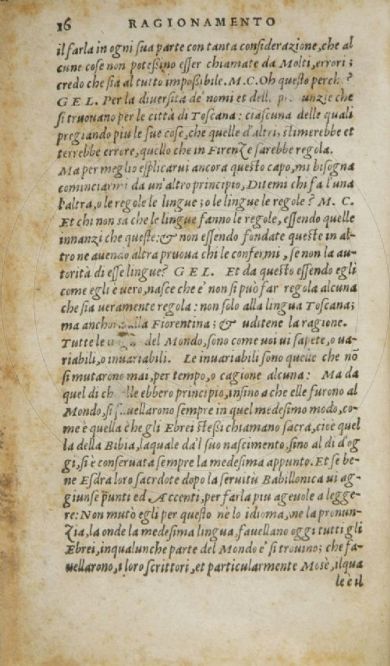 16 RAGIONAMENTO
il farla in ogni sua parte con tanta considerazione, che al
cune cose non potessino esser chiamate da Molti, errori;
credo che sia al tutto impossibile. M. C. Oh questo perch ?
G E L. Per la diversità de' nomi et dell pr unzie che
si truovano per le città di Toscana: ciascuna delle quali
pregiando più le sue cose, che quelle d'altri, stimerebbe et
terrebbe errore, quello che in Firenze sarebbe regola.
Ma per meglio esplicarvi ancora questo capo, mi bisogna
cominciarmi da un'altro principio, Ditemi chi fa l'una
l'altra, o le regole le lingue; o le lingue le regole? M. C.
Et chi non sa che le lingue fanno le regole, essendo quelle
innanzi che queste: & non essendo fondate queste in al-
tro ne avendo altra pruova chi le confermi, se non la au-
torità di esse lingue? G E L. Et da questo essendo egli
come egli è vero, nasce che e' non si può far regola alcuna
che sia veramente regola: non solo alla lingua Toscana;
ma anchora alla Fiorentina; & uditene la ragione.
Tutte le del Mondo, sono come voi vi sapete, o va-
riabili, o invariabili. Le invariabili sono quelle che nō
si mutarono mai, per tempo, o cagione alcuna: Ma da
quel di ch lle ebbero principio, insino a che elle furono al
Mondo, si favellarono sempre in quel medesimo modo, co-
me è quella che gli Ebrei stessi chiamano sacra, cioè quel
la della Bibia, laquale da'l suo nascimento, sino al dì d'og
gi, si è conservata sempre la medesima appunto. Et se be-
ne Esdra loro sacrdote dopo la servitù Babillonica vi ag-
giunse punti ed Accenti, per farla più agevole a legge-
re: Non mutò egli per questo nè lo idioma, ne la pronun-
Zia, la onde la medesima lingua, favellano oggi tutti gli
Ebrei, in qualunche parte del Mondo e' si truovino; che fa-
vellarono, i loro scrittori, et particularmente Mosè, ilqua
le è il